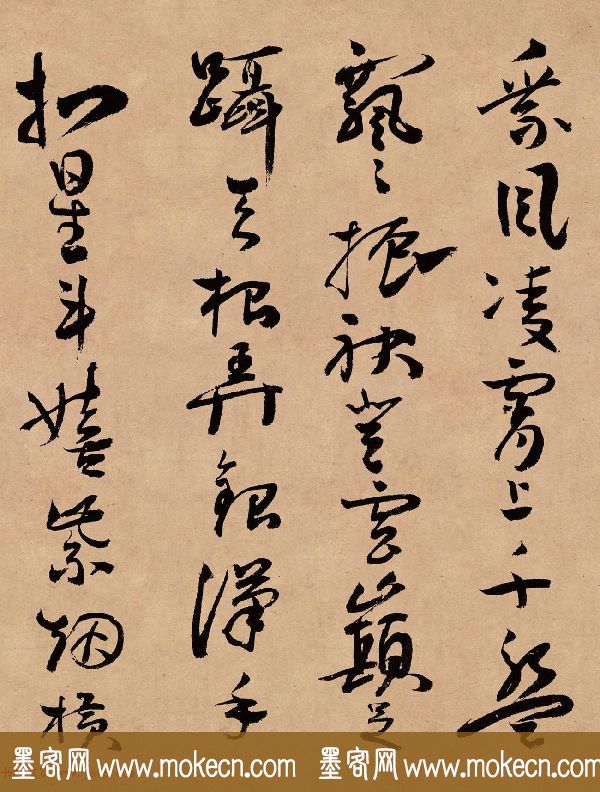 乘風凌霄上千盤
飄〻振袂登雲巔足
躡天根弄銀漢手
捫星斗嬉紫烟橫
墨客网 www.mokecn.com 墨客网 www.mokecn.com